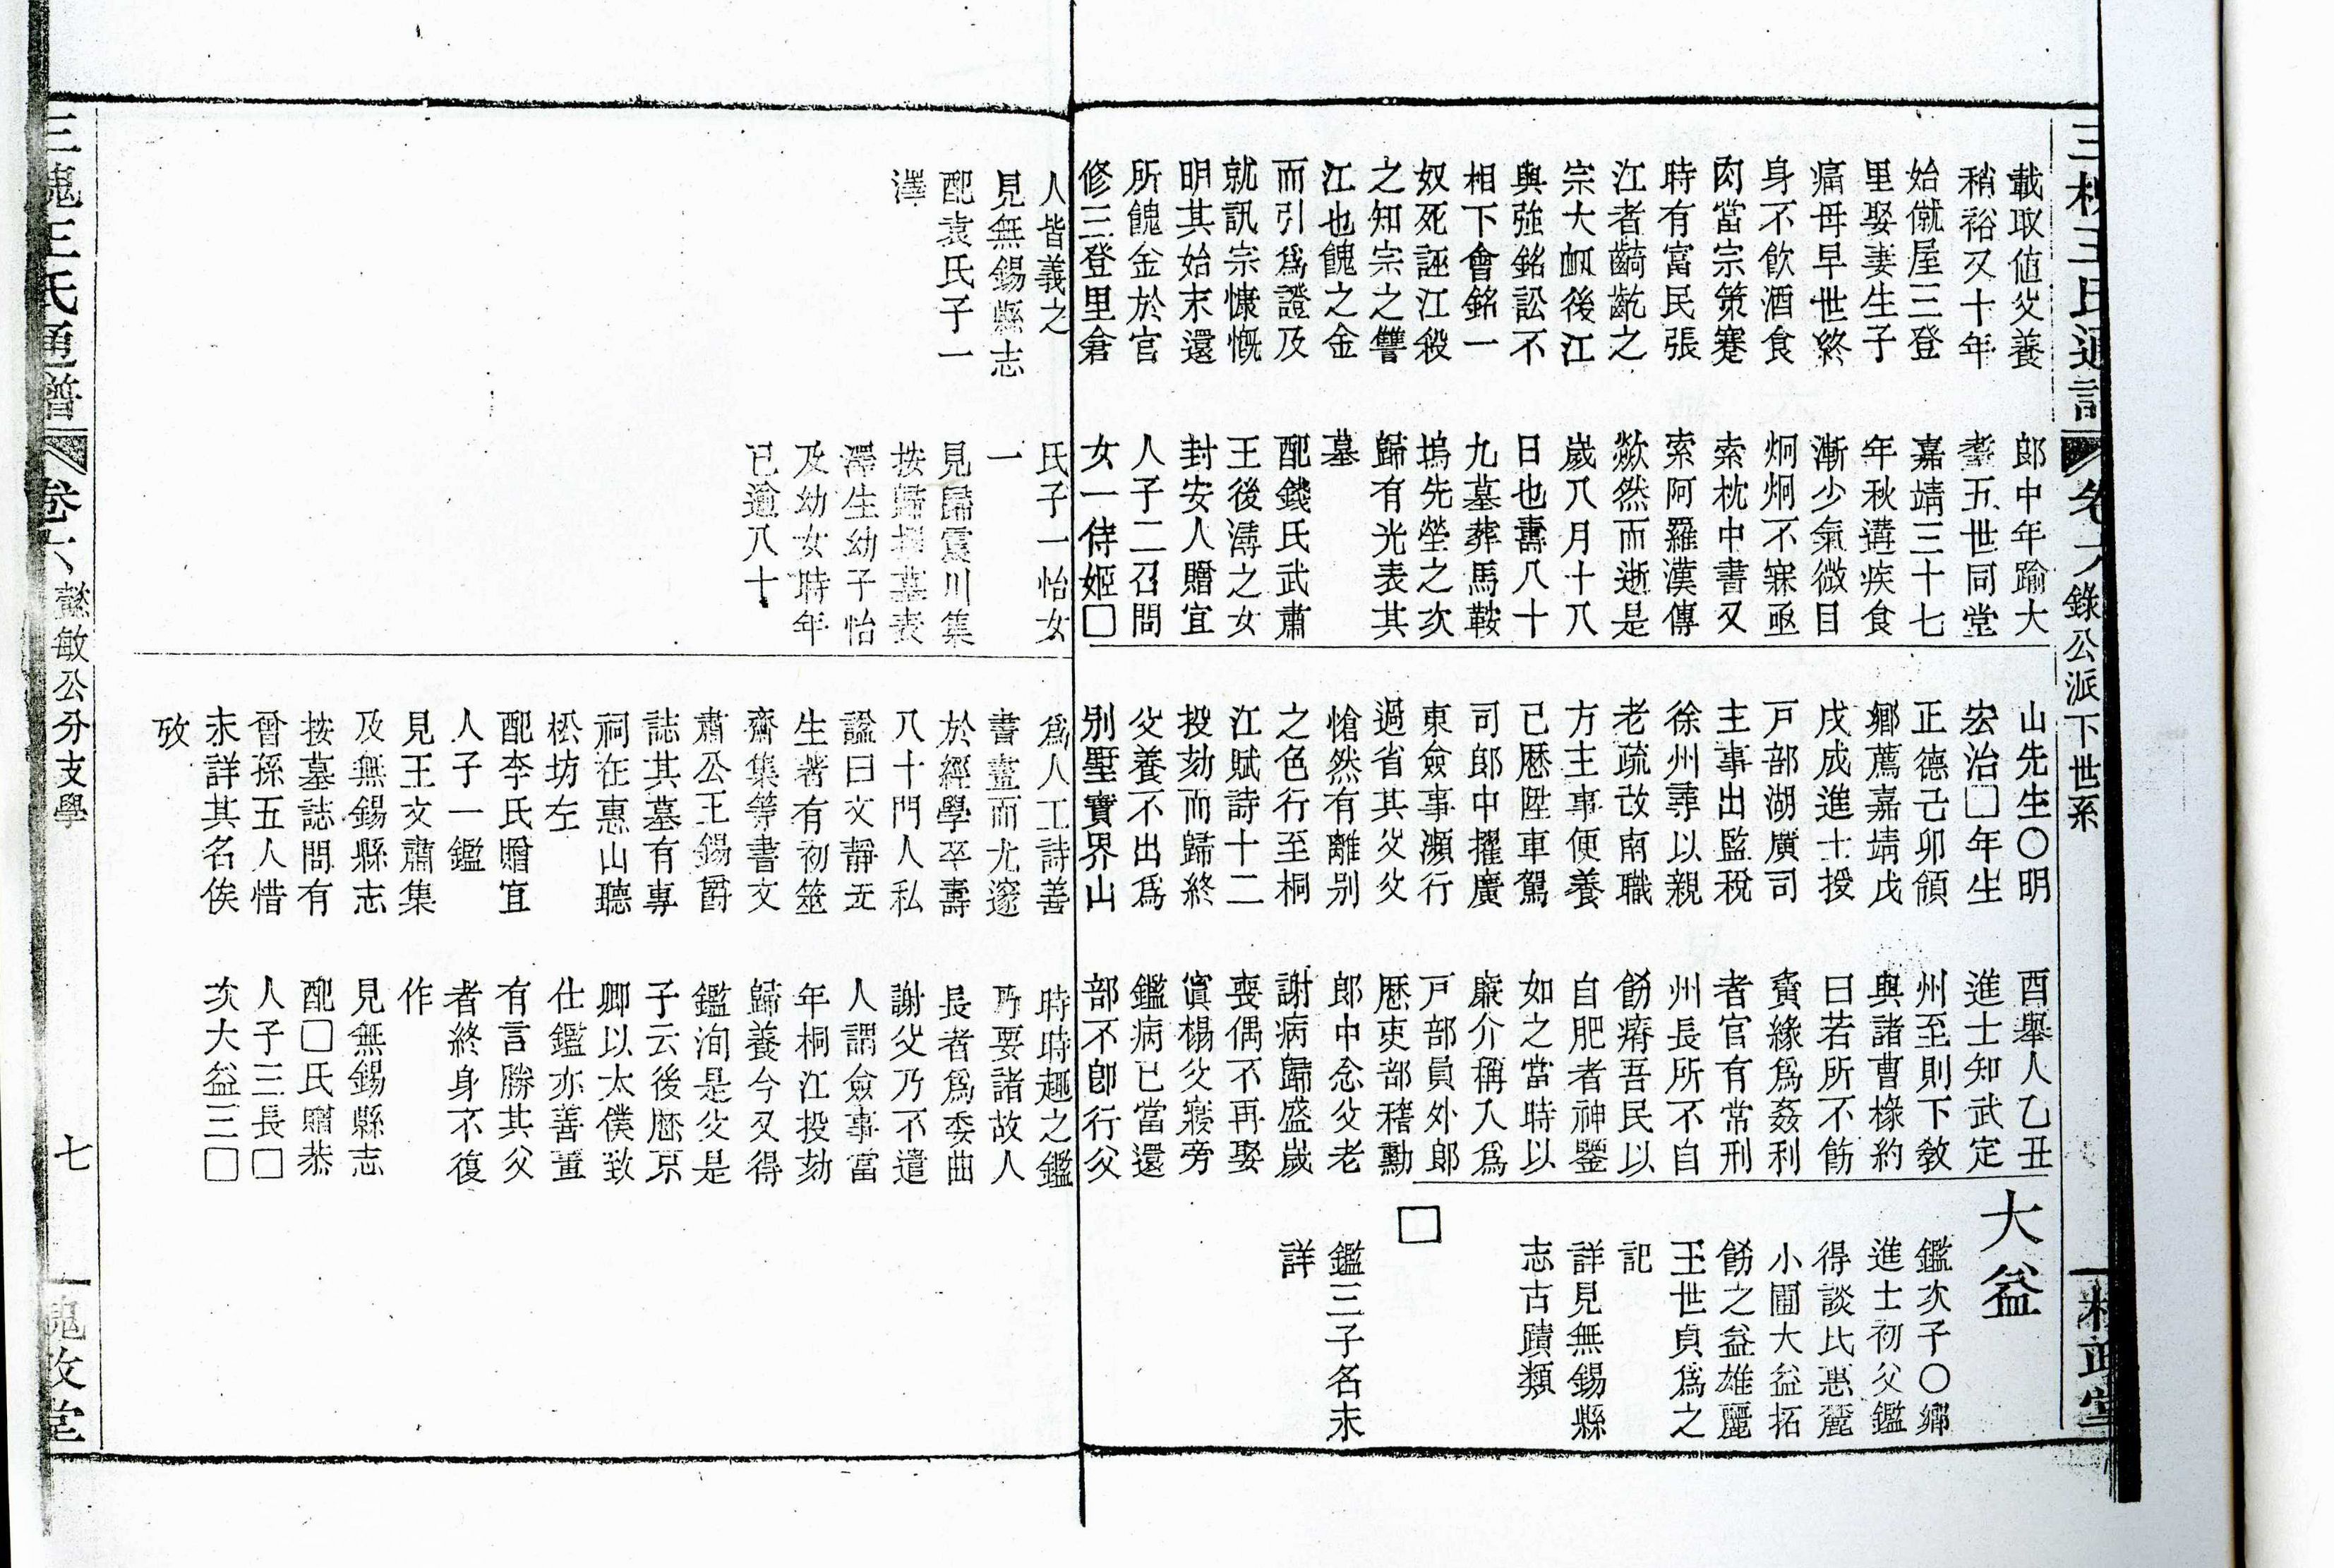 三槐王氏通譜
錄公派下世系
載取値父養
稍裕又十年
始僦屋三登
里娶妻生子
痛母早世終
身不飲酒食
肉當宗策蹇
時有富民張
江者齮齕之
宗大衂後江
與強銘訟不
相下會銘一
奴死誣江殺
之知宗之讐
江也餽之金
而引爲證及
就訊宗慷慨
明其始末還
所餽金於官
修三登里倉
郞中年踰大
耋五世同堂
嘉靖三十七
年秋遘疾食
漸少氣微目
炯炯不寐亟
索枕中書又
索阿羅漢傳
歘然而逝是
歲八月十八
日也壽八十
九墓葬馬鞍
塢先塋之次
歸有光表其
墓
配錢氏武肅
王後濤之女
封安人贈宜
人子二召問
女一侍姬□
山先生○明
宏治□年生
正德己卯領
鄉薦嘉靖戊
戌成進士授
戸部湖廣司
主事出監稅
徐州尋以親
老疏改南職
方主事便養
已歷陞車駕
司郎中擢廣
東僉事瀕行
過省其父父
愴然有離別
之色行至桐
江賦詩十二
投劾而歸終
父養不出爲
別墅寶界山
酉舉人乙丑
進士知武定
州至則下敎
與諸曹椽約
曰若所不飭
賫緣爲姦利
者官有常刑
州長所不自
飭瘠吾民以
自肥者神鑒
如之當時以
廉介稱入爲
戸部員外郎
歷吏部稽勳
郎中念父老
謝病歸盛歲
喪偶不再娶
寘榻父寢旁
鑑病已當還
部不卽行父
大益
鑑次子○鄉
進士初父鑑
得談氏惠麓
小圃大益拓
飭之益雄麗
王世貞爲之
記
詳見無錫縣
志古蹟類
□
鑑三子名未
詳
人皆義之
見無錫縣志
配袁氏子一
澤
氏子一怡女
一
見歸震川集
按歸撰墓表
澤生幼子怡
及幼女時年
已逾八十
爲人工詩善
書畫而尤邃
於經學卒壽
八十門人私
諡曰文靜先
生著有初筮
齋集等書文
肅公王錫爵
誌其墓有專
祠在惠山聽
松坊左
配李氏贈宜
人子一鑑
見王文肅集
及無錫縣志
按墓誌問有
曾孫五人惜
未詳其名俟
攷
時時趣之鑑
乃要諸故人
長者爲委曲
謝父乃不遣
人謂僉事當
年桐江投劾
歸養今又得
鑑洵是父是
子云後歷京
卿以太僕致
仕鑑亦善畫
有言勝其父
者終身不復
作
見無錫縣志
配□氏贈恭
人子三長□
次大益三□
三槐王氏通譜
卷六
懿敏公分支學
七
槐政堂